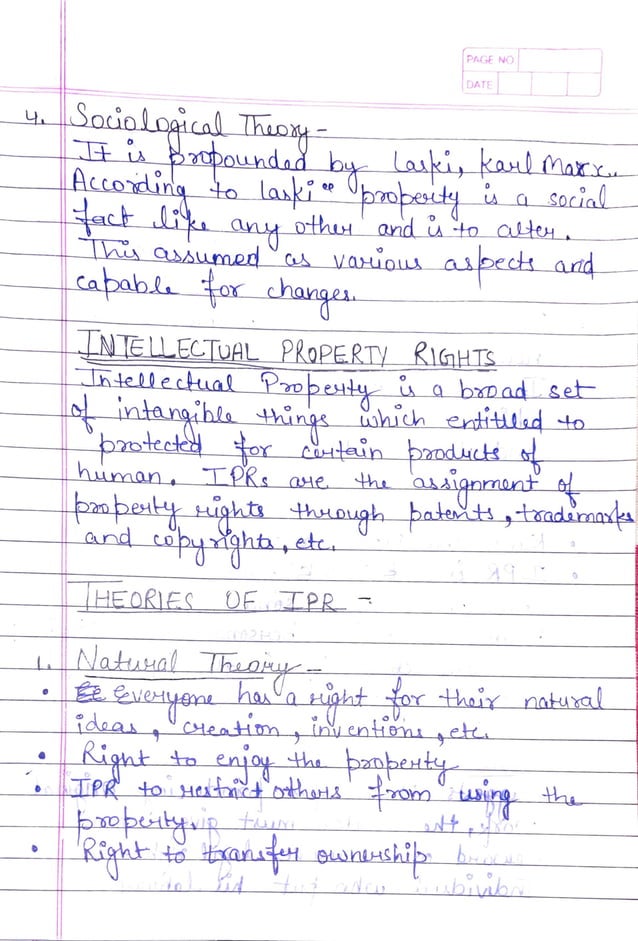 PAGE NO
DATE
4. Sociological Theory -
It is propounded by Laski, Karl Marx.
According to Laski "property is a social
fact like any other and is to alter.
This assumed as various aspects and
capable for changes.
INTELLECTUAL PROPERTY RIGHTS
Intellectual Property is a broad set
of intangible things which entitled to
protected for certain products of
human. IPRs are the assignment of
property rights through patents, trademarks
and copyrights, etc.
THEORIES OF IPR -
1. Natural Theory -
• Everyone has a right for their natural
ideas, creation, inventions, etc.
• Right to enjoy the property
• IPR to restrict others from using the
property.
• Right to transfer ownership